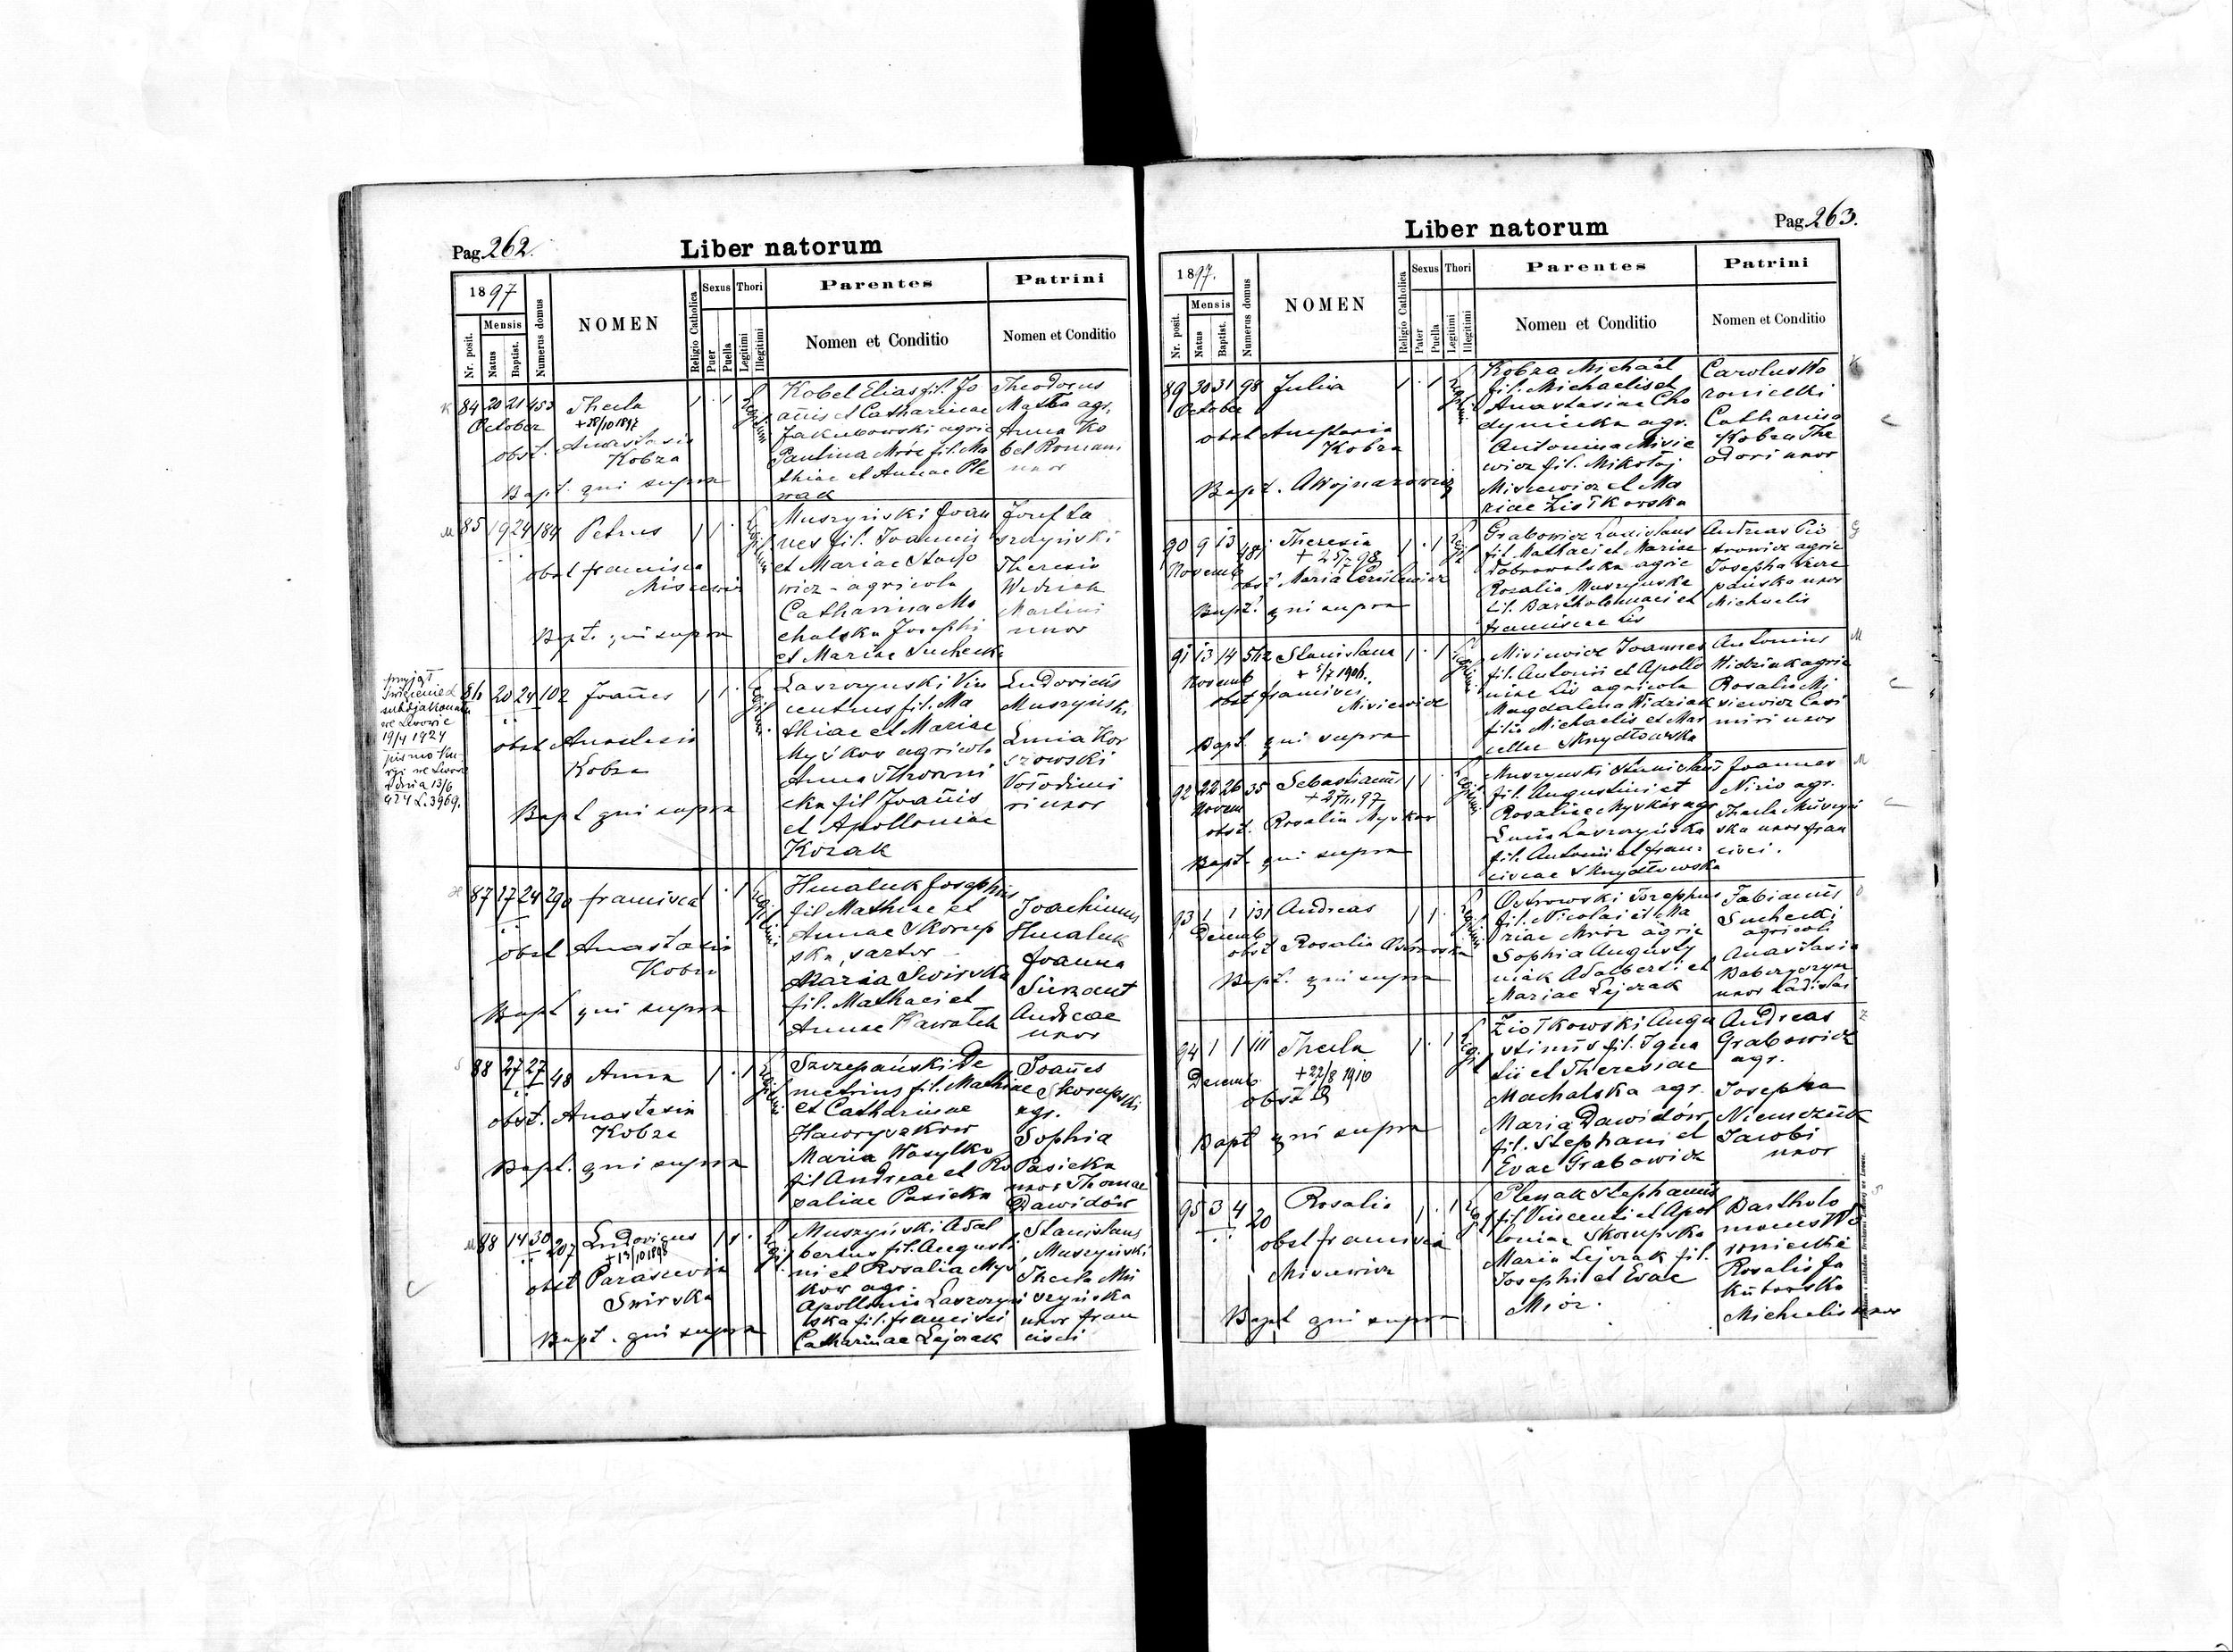 Pag. 262.
Liber natorum
1897
Nr. posit.
Mensis
Natus
Baptist.
Numerus domus
NOMEN
Religio Catholica
Sexus
Puer
Puella
Thori
Legitimi
Illegitimi
Parentes
Nomen et Conditio
Patrini
Nomen et Conditio
K 84 20 21 453 Thecla
+28/10 1897
October
obst. Anastasia
Kobza
Bapt. qui supra
Kobel Elias fil. Jo
annis et Catharinae
Jakubowski agric
Paulina Mróz fil. Ma
thiae et Annae Ple
Theodorus
agr.
Anna Ko
bel Romani
uxor
M 85 19 24 184 Petrus
obst francisca
Bapt. qui supra
Muszyński Joan
nes fil. Joannis
et Mariae
wicz - agricola
Catharina Mo
chalska Josephi
et Mariae Suchecka
Josef La
szczyński
Theresia
Martini
uxor
przyjął
święcenie
subdjakonatu
we Lwowie
19/4 1924
pismo Ku
rji we Lwow
z dnia 13/6
924 L. 3969.
86 20 24 102 Joanes
obst Anastasia
Kobza
Bapt qui supra
Laszczynski Vin
centius fil. Ma
thiae et Mariae
Myśkow agricola
Anna
cka fil Joanis
et Apolloniae
Kozak
Ludovicus
Muszyński
szowski
ri uxor
H 87 17 24 290 francisca
obst Anastasia
Kobza
Bapt qui supra
Hmaluk Josephus
fil Mathiae et
Annae Skorup
ska, sartor
Maria Swirska
fil. Mathaei et
Annae
Joachimus
Hmaluk
Joanna
Andreae
uxor
S 88 27 27 48 Anna
obst. Anastasia
Kobza
Bapt. qui supra
Szczepański De
metrius fil. Mathiae
et Catharinae
Maria Wasylko
fil Andreae et Ro
saliae Pasieka
Joanes
Skorupski
agr.
Sophia
Pasieka
uxor Thomae
Dawidów
M 88 14 30 207 Ludovicus
+13/10 1898
obst Parascevia
Swirska
Bapt. qui supra
Muszyński Adal
bertus fil. Augusti
ni et Rosalia Myś
kow agr.
Apollonia Laszczyń
ska fil. francisci
Catharinae Lejczak
Stanislaus
Muszyński
Thecla Mu
szyńska
uxor fran
cisci
Pag. 263.
Liber natorum
1897.
Nr. posit.
Mensis
Natus
Baptist.
Numerus domus
NOMEN
Religio Catholica
Sexus
Pater
Puella
Thori
Legitimi
Illegitimi
Parentes
Nomen et Conditio
Patrini
Nomen et Conditio
89 30 31 98 Julia
October
obst Anastasia
Kobza
Bapt. A Wojnarowicz
Kobza Michaël
fil. Michaelis et
Anastasiae Cho
dyniecka agr.
Antonina Misie
wicz fil. Mikołaj
Misiewicz et Ma
riae Ziołkowska
Carolus Wo
roniecki
Catharina
Kobza The
odori uxor
K
90 9 13 481 Theresia
Novemb
obst Maria
Bapt. qui supra
Grabowicz Ladislaus
fil Mathaei et Mariae
Dobrowolska agric
Rosalia Muszynska
fil. Bartholomaei et
franciscae Lis
Andreas Pio
trowicz agric
Josepha Szcze
pańska uxor
Michaelis
G
91 13 14 562 Stanislaus
+ 5/7 1906.
Novemb
obst francisca
Misiewicz
Bapt qui supra
Misiewicz Joannes
fil. Antonii et Apollo
niae Lis agricola
Magdalena Widziak
filia Michaelis et Mar
cellae Skrydłowska
Antonius
Widziak agric
Rosalia Mi
siewicz Casi
miri uxor
M
92 22 26 35 Sebastianus
Novem
obst. Rosalia Myskow
Bapt. qui supra
Muszynski Stanislaus
fil. Augustini et
Rosaliae Myskow agr
Laszczyńska
fil. Antonii et fran-
ciscae Skrydłowska
Joannes
agr.
Thecla Muszyń
ska uxor fran
cisci.
M
93 1 1 131 Andreas
Decemb
obst Rosalia Ostrowska
Bapt. qui supra
Ostrowski Josephus
fil. Nicolai et Ma
riae Mróz agric
Sophia Augusty
niak Adalberti et
Mariae Lejczak
Fabianus
Suchecki
agricola
Anastasia
uxor Ladislai
O
94 1 1 111 Thecla
+22/8 1910
Decemb.
obst
Bapt qui supra
Ziołkowski Augu
stinus fil. Igna
tii et Theresiae
Machalska agr.
Maria Dawidów
fil. Stephani et
Evae Grabowicz
Andreas
Grabowicz
agr.
Josepha
Niemczuk
Jacobi
uxor
Z
95 3 4 20 Rosalia
obst francisca
Misiewicz
Bapt qui supra
Plenak Stephanus
fil Vincenti et Apol
loniae Skorupska
Maria Lejczak fil.
Josephi et Evae
Mróz.
Bartholo
maeus Wo
roniecki
Rosalia Ja
kubowska
Michaelis uxor